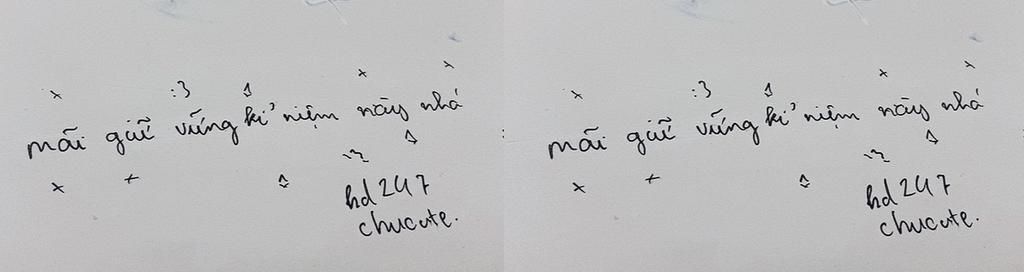 :3 :3
mãi giữ vững kỉ niệm này nhá mãi giữ vững kỉ niệm này nhá
hd247 hd247
chucute. chucute.